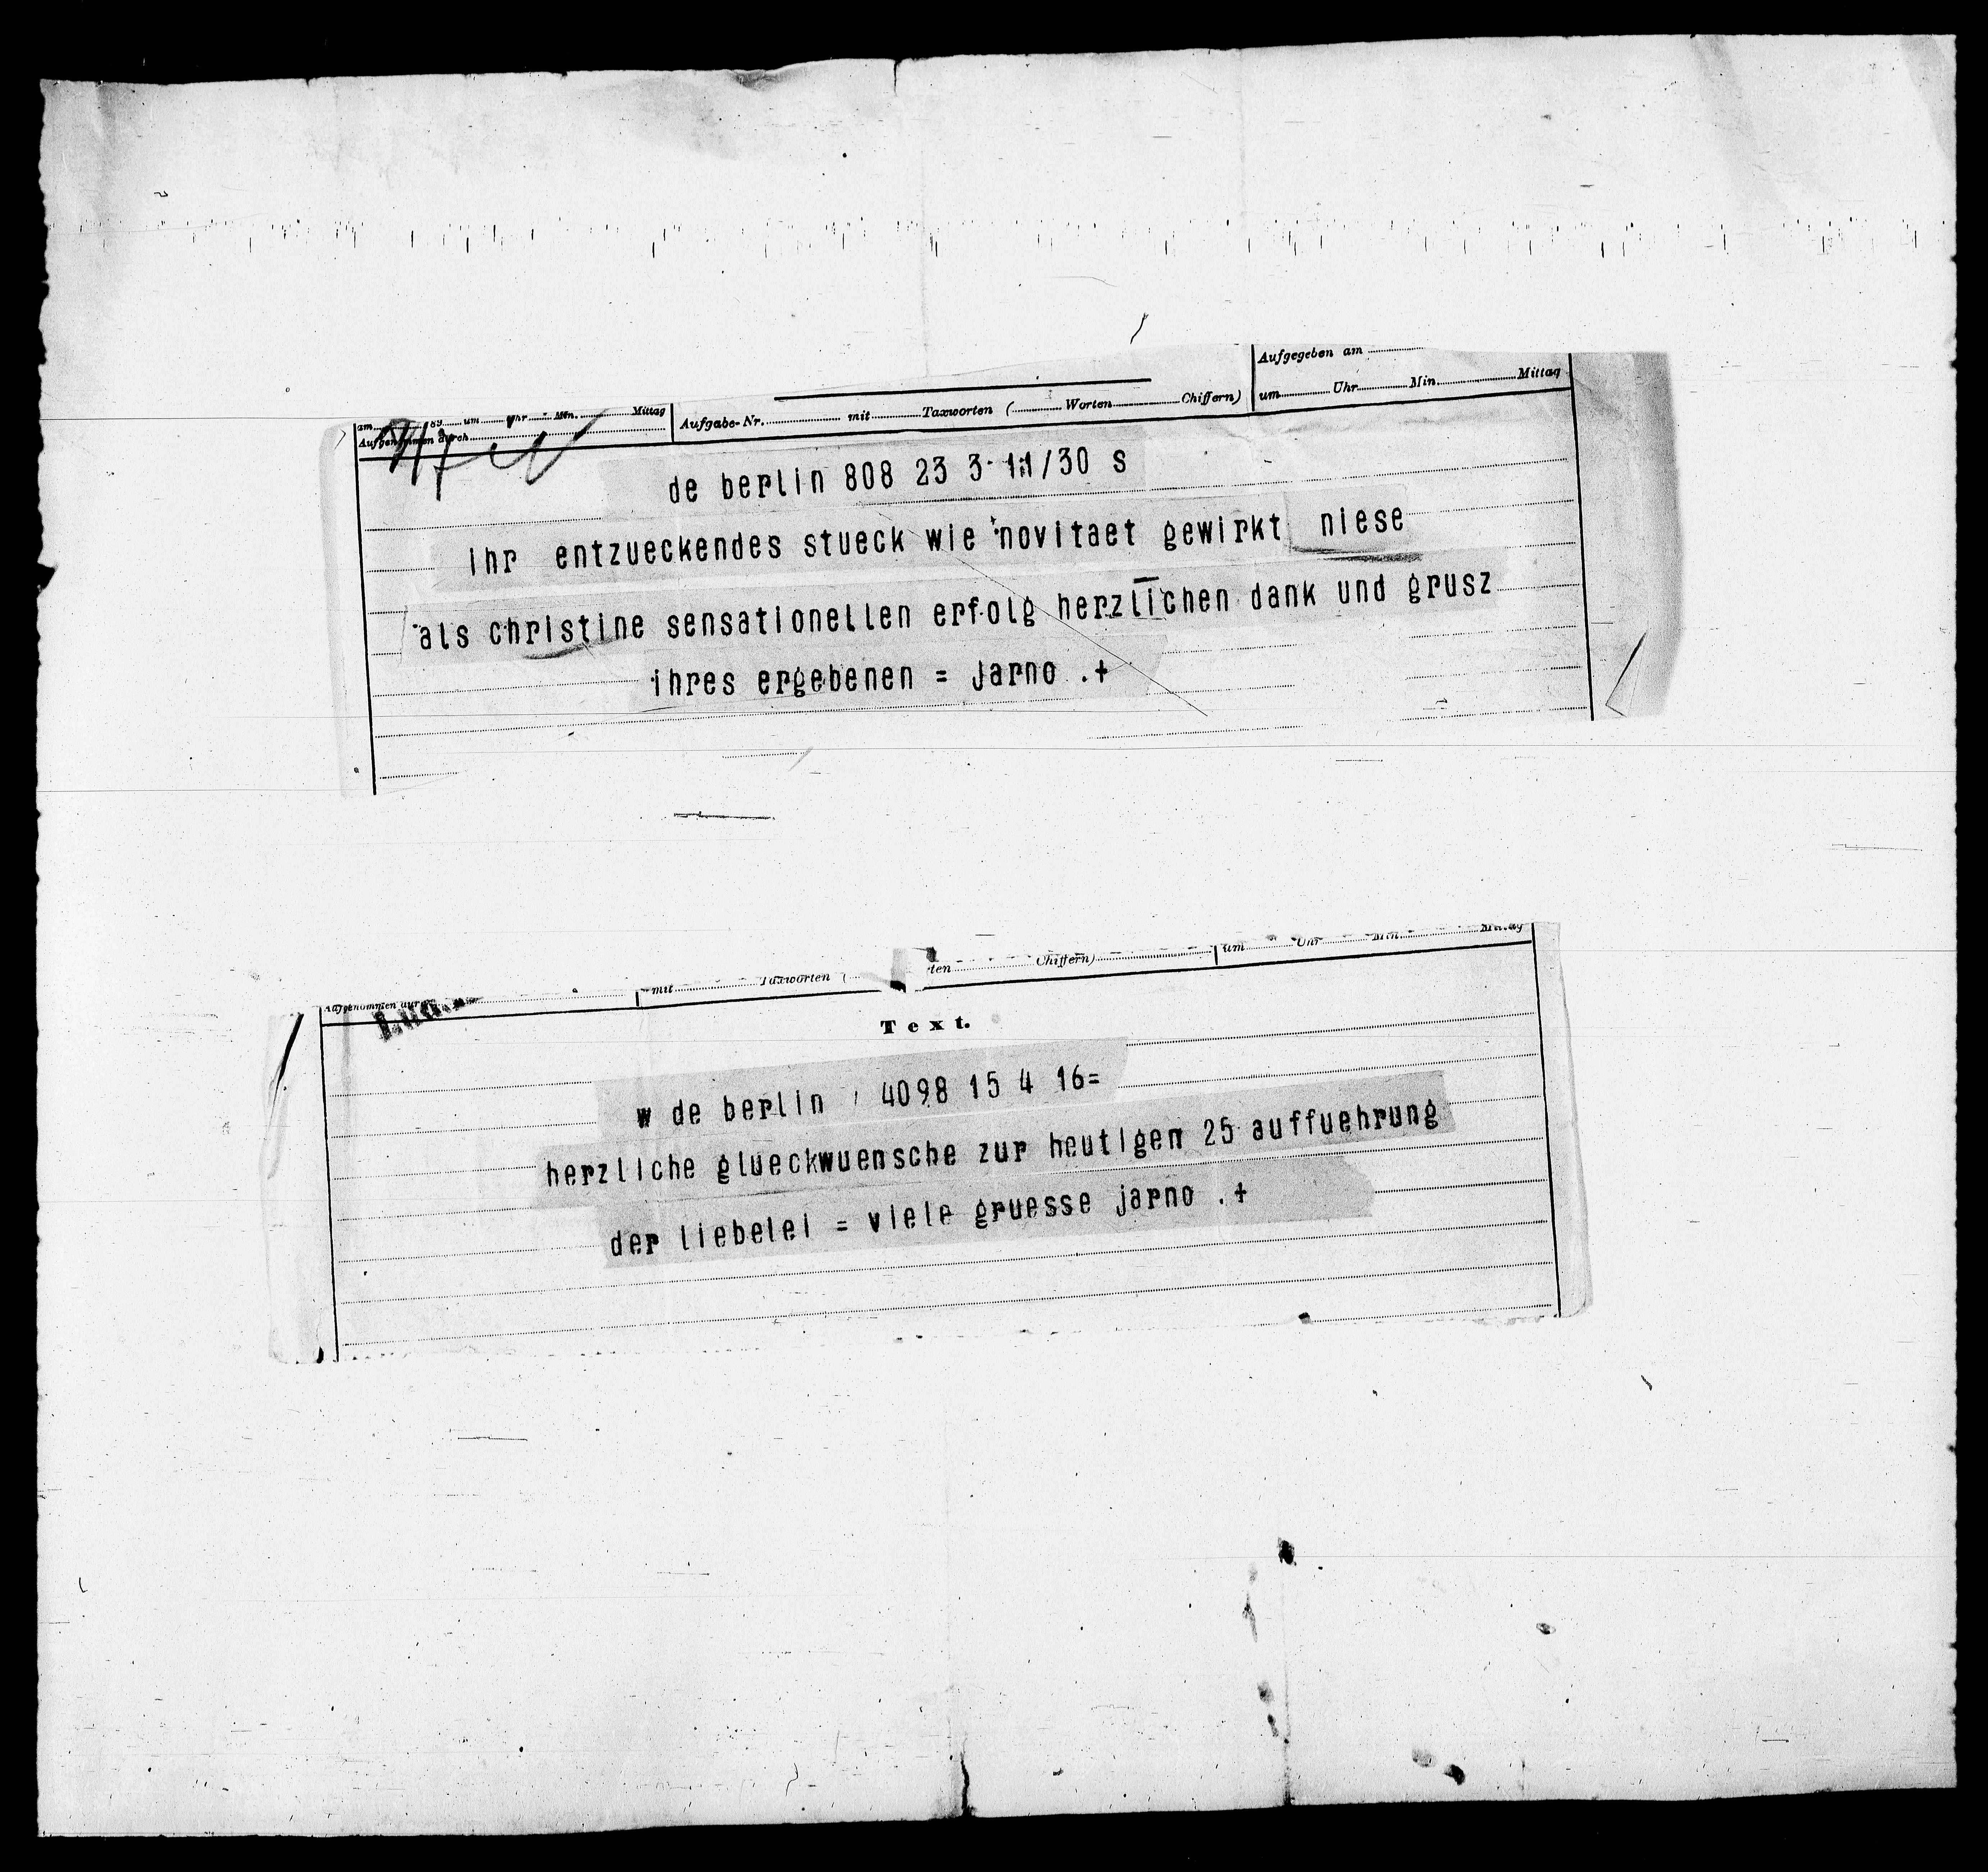 Aufgegeben am
am um Uhr Min. Mittag
Aufgenommen durch
Aufgabe-Nr. mit Taxworten ( Worten Chiffern)
um Uhr Min. Mittag
de berlin 808 23 3 11/30 s
ihr entzueckendes stueck wie novitaet gewirkt niese
als christine sensationellen erfolg herzlichen dank und grusz
ihres ergebenen = jarno .+
um Uhr Min. Mittag
Aufgenommen durch mit Taxworten ( Chiffern)
Text.
w de berlin 4098 15 4 16=
herzliche glueckwuensche zur heutigen 25 auffuehrung
der liebelei = viele gruesse jarno .+